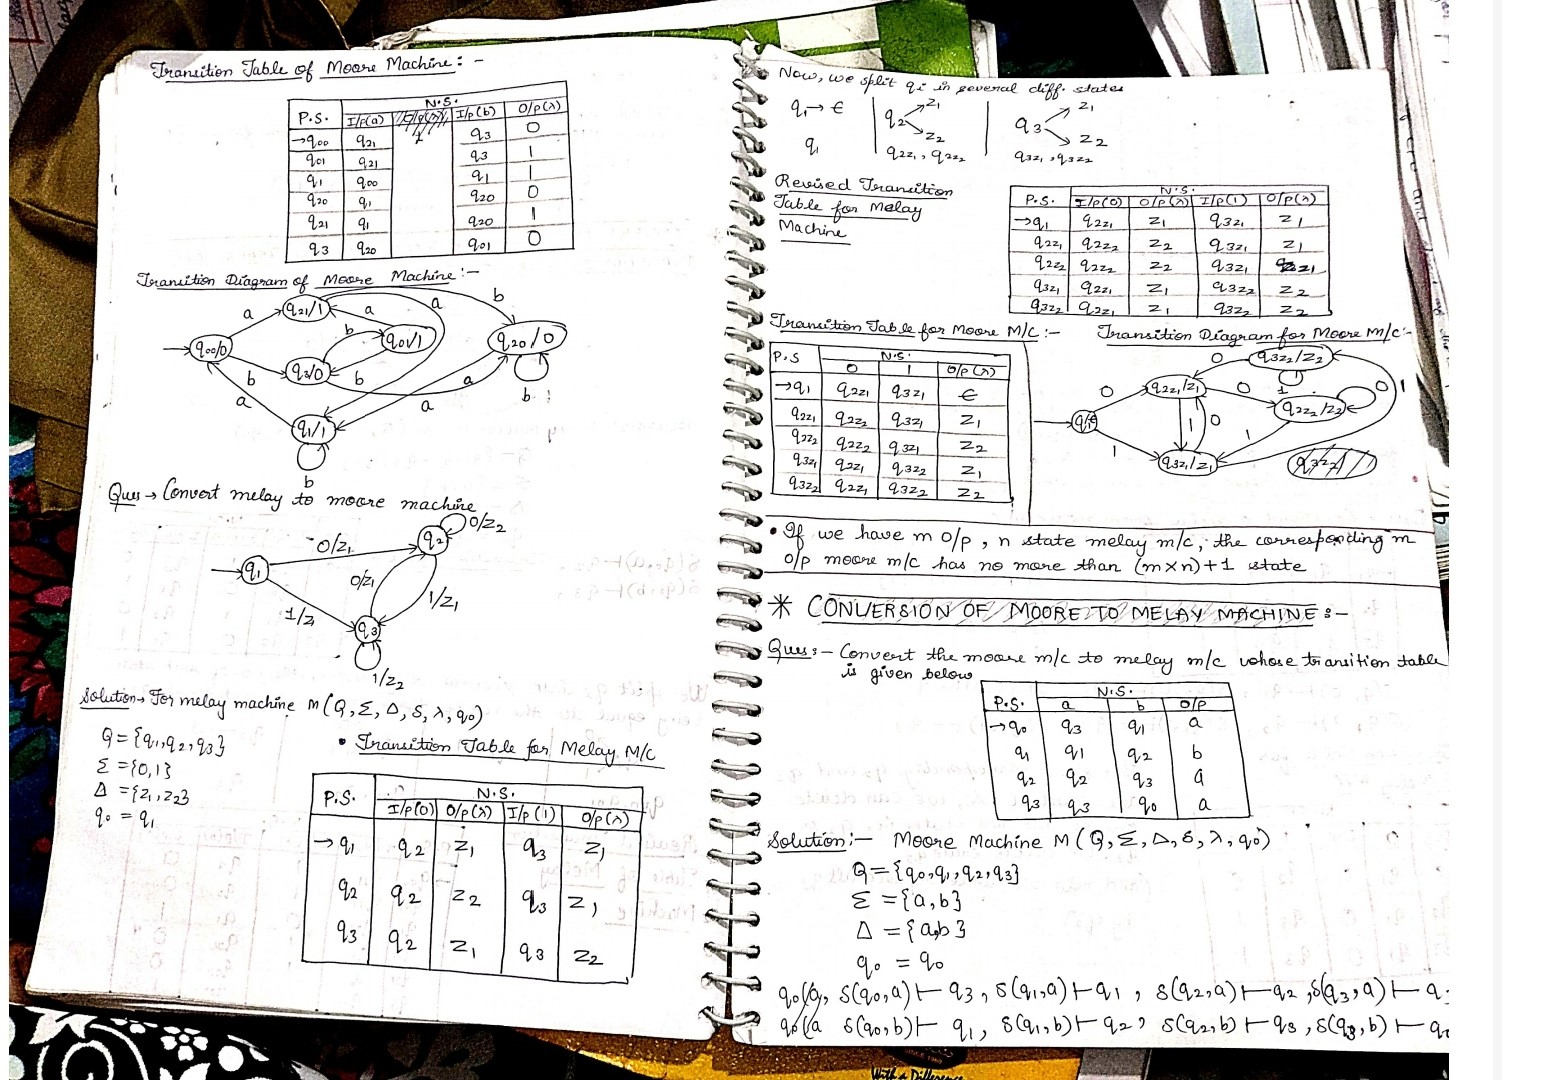 Transition Table of Moore Machine: -
P.S. N.S.
I/p(a) I/p(b) O/p(λ)
→q00 q21 q3 0
q01 q21 q3 1
q1 q00 q1 1
q20 q1 q20 0
q21 q1 q20 1
q3 q20 q01 0
Transition Diagram of Moore Machine:-
q21/1 a a a b
q00/0 b q01/1 q20/0
b q3/0 b a b
a q1/1 a
b
Ques → Convert melay to moore machine
0/Z1 q2 0/Z2
q1 0/Z1 1/Z1
1/Z q3
1/Z2
Solution→ For melay machine M(Q,Σ,Δ,δ,λ,q0)
Q={q1,q2,q3}
Σ={0,1}
Δ={Z1,Z2}
q0 = q1
• Transition Table for Melay M/C
P.S. N.S.
I/p(0) O/p(λ) I/p(1) O/p(λ)
→q1 q2 Z1 q3 Z1
q2 q2 Z2 q3 Z1
q3 q2 Z1 q3 Z2
Now, we split qi in several diff. states
q1→ ϵ q2 Z1 Z2 q3 Z1 Z2
q1 q2Z1, q2Z2 q3Z1, q3Z2
Revised Transition
Table for Melay
Machine
P.S. N.S.
I/p(0) O/p(λ) I/p(1) O/p(λ)
→q1 q2Z1 Z1 q3Z1 Z1
q2Z1 q2Z2 Z2 q3Z1 Z1
q2Z2 q2Z2 Z2 q3Z1 Z1
q3Z1 q2Z1 Z1 q3Z2 Z2
q3Z2 q2Z1 Z1 q3Z2 Z2
Transition Table for Moore M/C:-
P.S N.S.
0 1 O/p(λ)
→q1 q2Z1 q3Z1 ϵ
q2Z1 q2Z2 q3Z1 Z1
q2Z2 q2Z2 q3Z1 Z2
q3Z1 q2Z1 q3Z2 Z1
q3Z2 q2Z1 q3Z2 Z2
Transition Diagram for Moore M/C:-
0 q3Z2/Z2
0 q2Z1/Z1 0 1 0 1
q1/ϵ 1 0 q2Z2/Z2
1 q3Z1/Z1 1
• If we have m O/p, n state melay m/c, the corresponding m
O/p moore m/c has no more than (m×n)+1 state
* CONVERSION OF MOORE TO MELAY MACHINE:-
Ques:- Convert the moore m/c to melay m/c whose transition table
is given below
P.S. N.S.
a b O/P
→q0 q3 q1 a
q1 q1 q2 b
q2 q2 q3 a
q3 q3 q0 a
Solution:- Moore Machine M(Q,Σ,Δ,δ,λ,q0)
Q={q0,q1,q2,q3}
Σ={a,b}
Δ={a,b}
q0 = q0
δ(q0,a)⊢ q3, δ(q1,a)⊢q1, δ(q2,a)⊢q2, δ(q3,a)⊢q
δ(q0,b)⊢ q1, δ(q1,b)⊢q2, δ(q2,b)⊢q3, δ(q3,b)⊢q
With a Difference